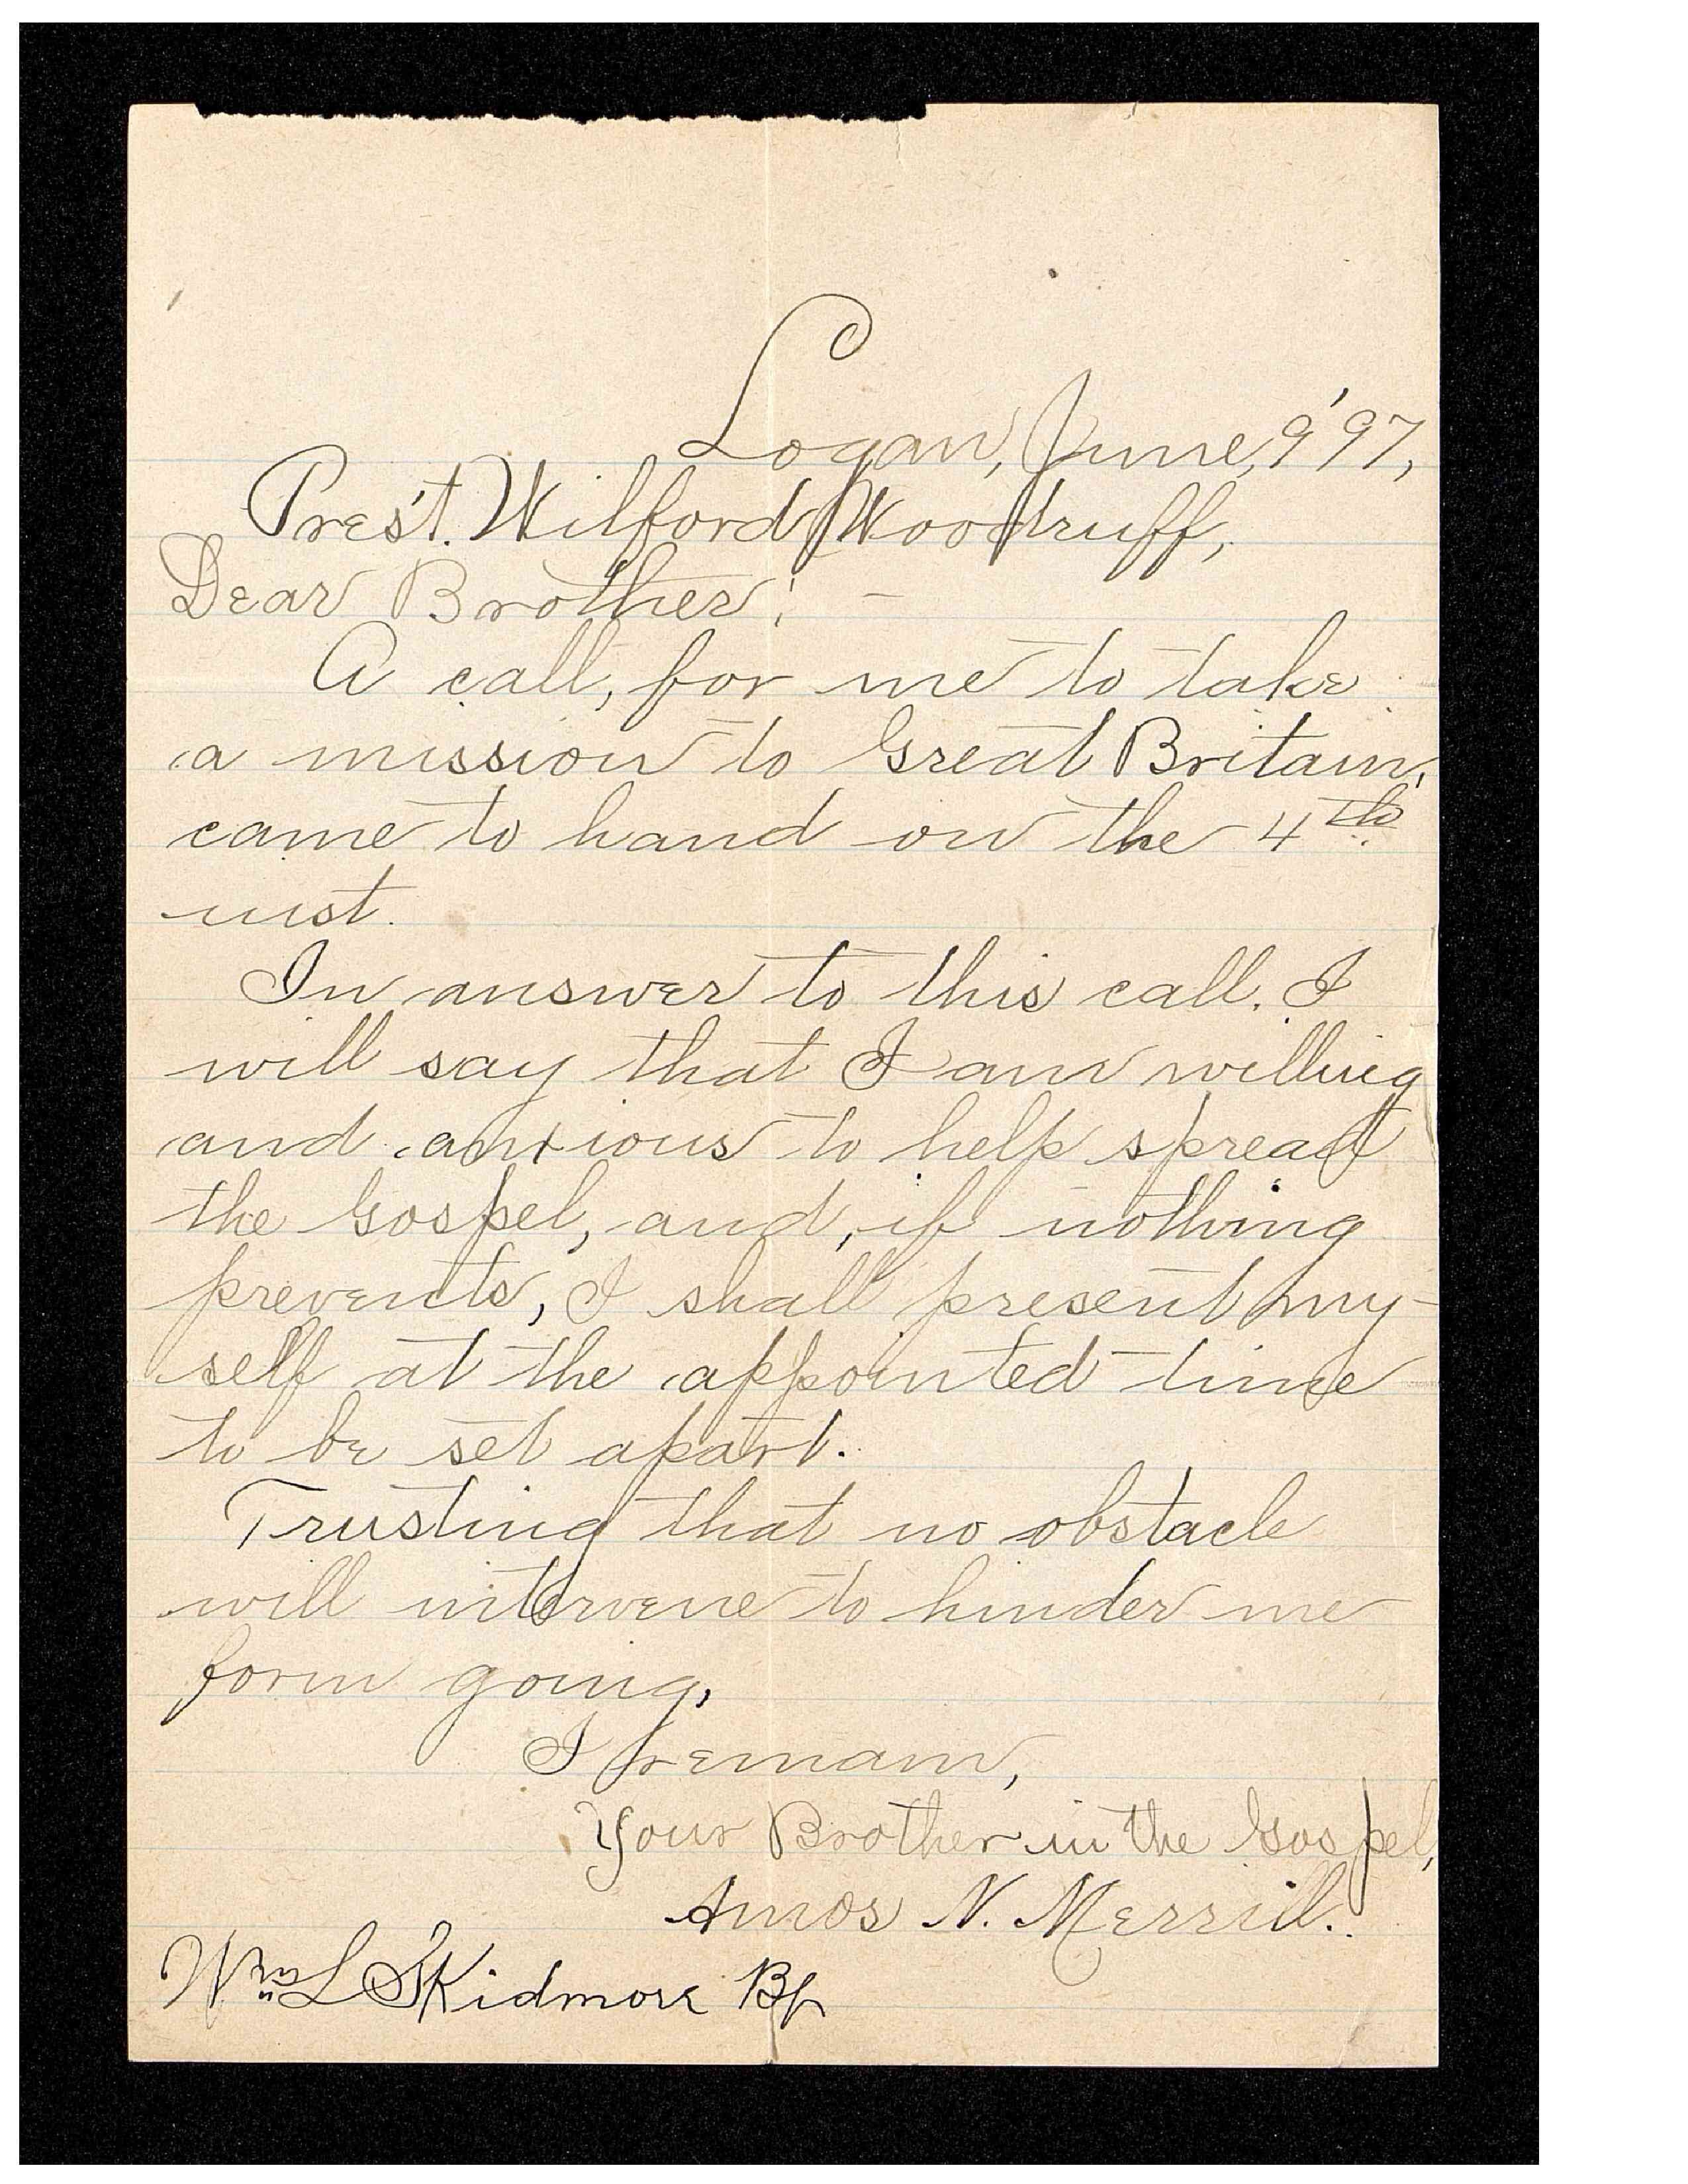 Logan, June, 9 '97,
Pres't. Wilford Woodruff,
Dear Brother; –
A call, for me to take
a mission to Great Britain,
came to hand on the 4th
inst.
In answer to this call. I
will say that I am willing
and anxious to help spread
the Gospel, and, if nothing
prevents, I shall present my-
self at the appointed time
to be set apart.
Trusting that no obstacle
will intervene to hinder me
form going,
I remain,
Your Brother in the Gospel,
Amos N. Merrill.
Wm L Skidmore Bp